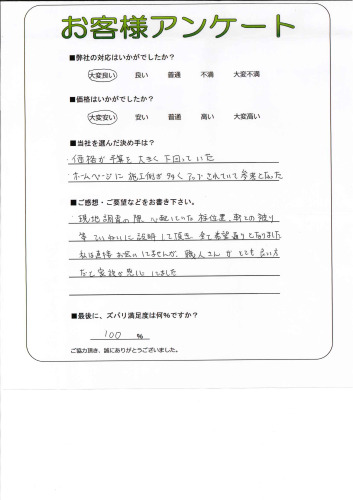 お客様アンケート
■弊社の対応はいかがでしたか?
大変良い 良い 普通 不満 大変不満
■価格はいかがでしたか?
大変安い 安い 普通 高い 大変高い
■当社を選んだ決め手は?
・価格が予算を大きく下回っていた
・ホームページに施工例が多くアップされていて参考となった
■ご感想・ご要望などをお書き下さい。
・現地調査の際、心配していた柱位置、車との被り
等ていねいに説明して頂き、全て希望通りとなりました
私は直接お会いしてませんが、職人さんがとても良い方
だと家族が申してました
■最後に、ズバリ満足度は何%ですか?
100 %
ご協力頂き、誠にありがとうございました。